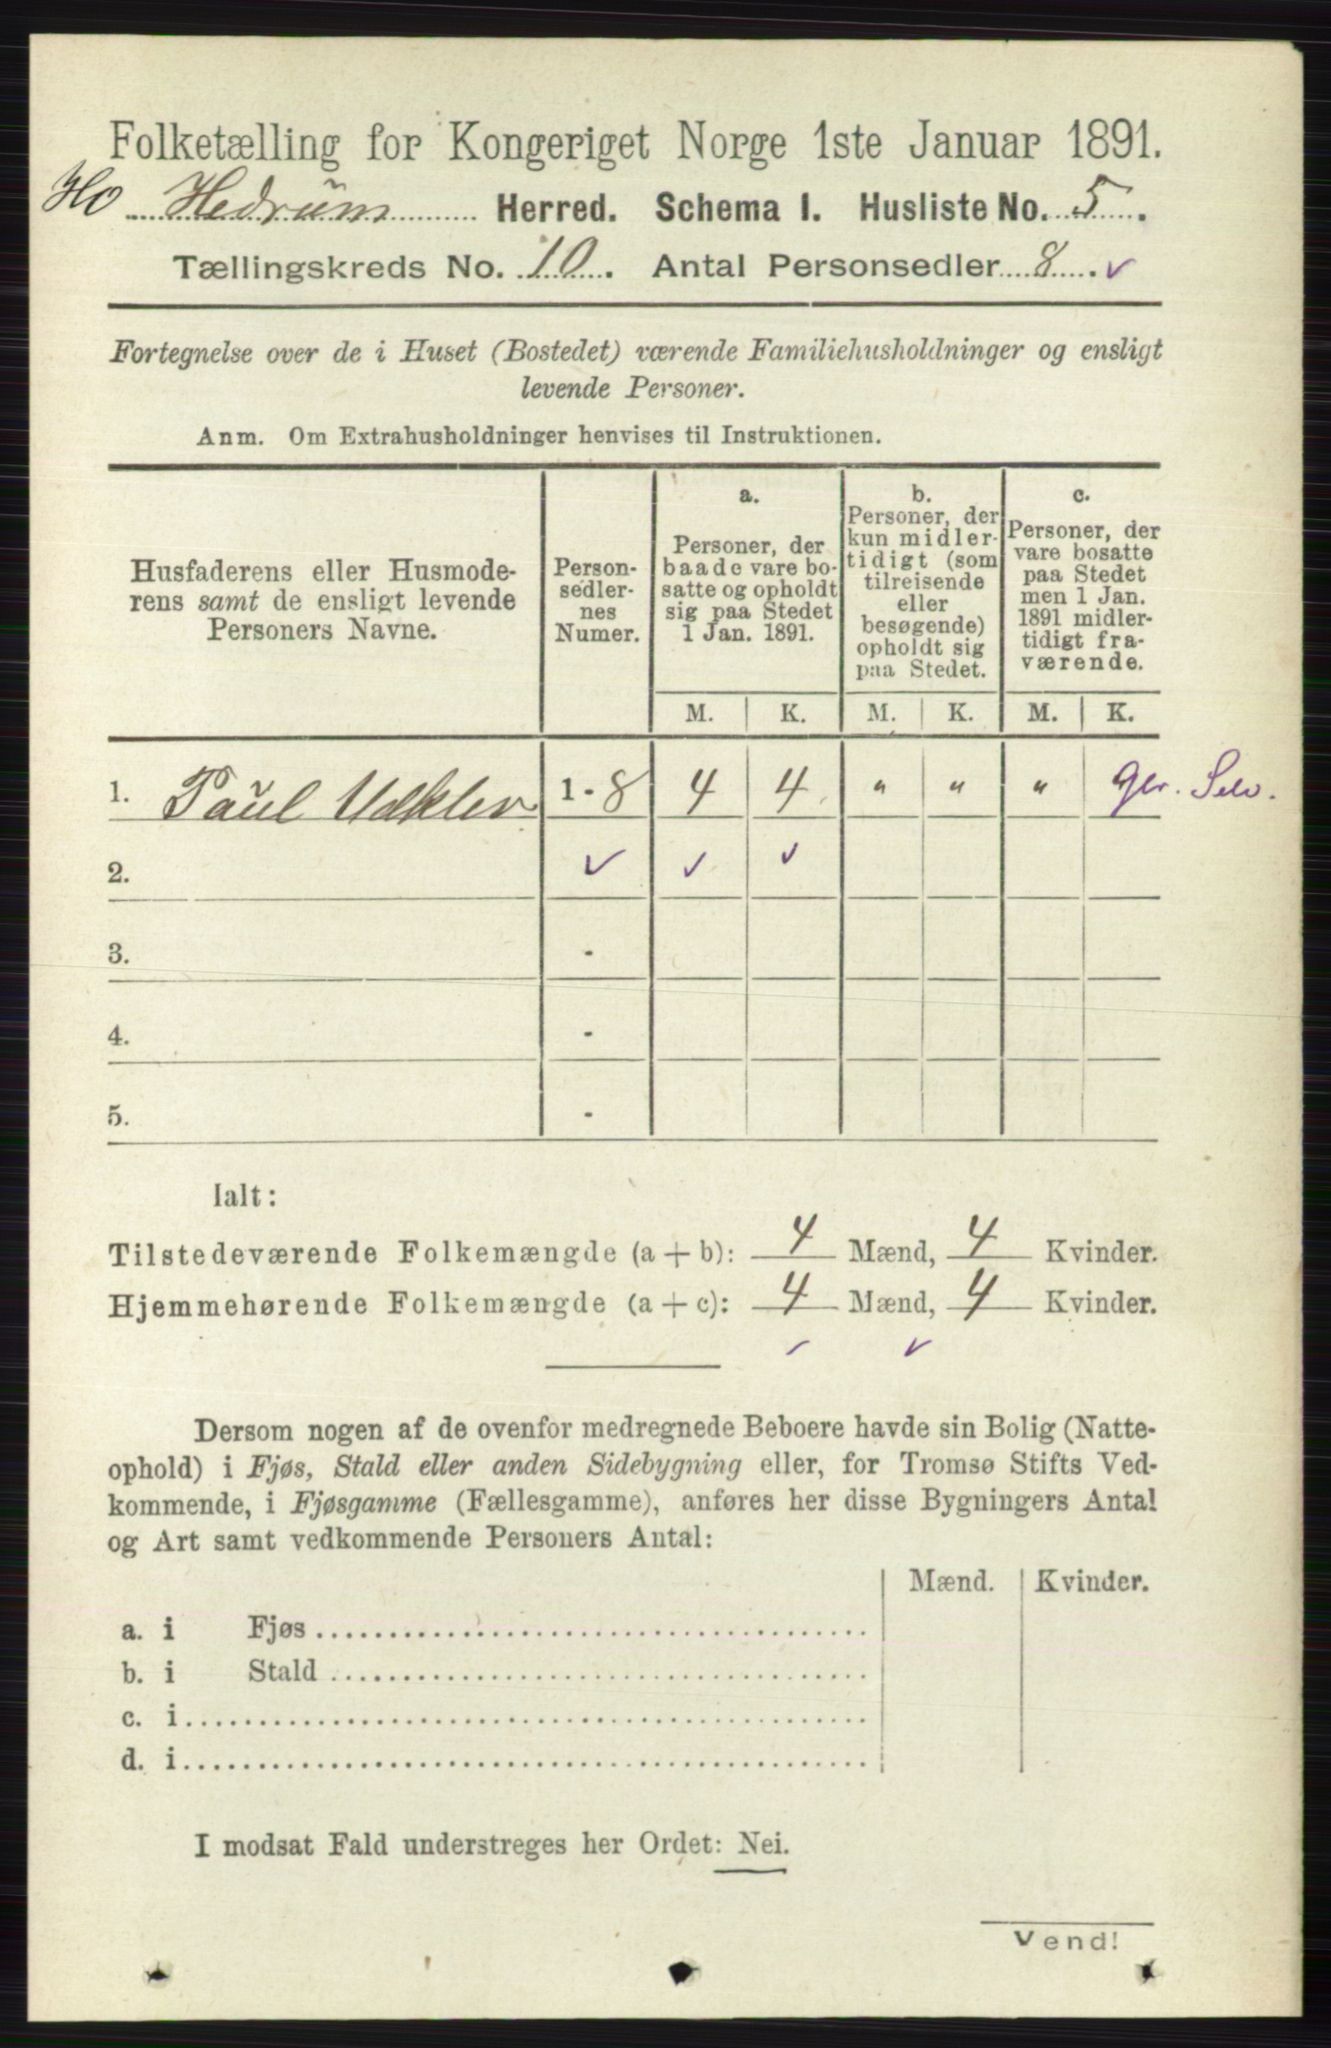 Folketælling for Kongeriget Norge 1ste Januar 1891.
Ho Hedrum Herred. Schema I. Husliste No. 5.
Tællingskreds No. 10. Antal Personsedler 8. ✓
Fortegnelse over de i Huset (Bostedet) værende Familiehusholdninger og ensligt
levende Personer.
Anm. Om Extrahusholdninger henvises til Instruktionen.
Husfaderens eller Husmode-
rens samt de ensligt levende
Personers Navne.
Person-
sedler-
nes
Numer.
a.
Personer, der
baade vare bo-
satte og opholdt
sig paa Stedet
1 Jan. 1891.
b.
Personer, der
kun midler-
tidigt (som
tilreisende
eller
besøgende)
opholdt sig
paa Stedet.
c.
Personer, der
vare bosatte
paa Stedet
men 1 Jan.
1891 midler-
tidigt fra-
værende.
M. K. M. K. M. K.
1. Paul 1 - 8 4 4 " " " Selv.
2. ✓ ✓ ✓
3. -
4. -
5. -
Ialt:
Tilstedeværende Folkemængde (a + b): 4 Mænd, 4 Kvinder.
Hjemmehørende Folkemængde (a + c): 4 Mænd, 4 Kvinder.
✓ ✓
Dersom nogen af de ovenfor medregnede Beboere havde sin Bolig (Natte-
ophold) i Fjøs, Stald eller anden Sidebygning eller, for Tromsø Stifts Ved-
kommende, i Fjøsgamme (Fællesgamme), anføres her disse Bygningers Antal
og Art samt vedkommende Personers Antal:
Mænd. Kvinder.
a. i Fjøs
b. i Stald
c. i
d. i
I modsat Fald understreges her Ordet: Nei.
Vend!